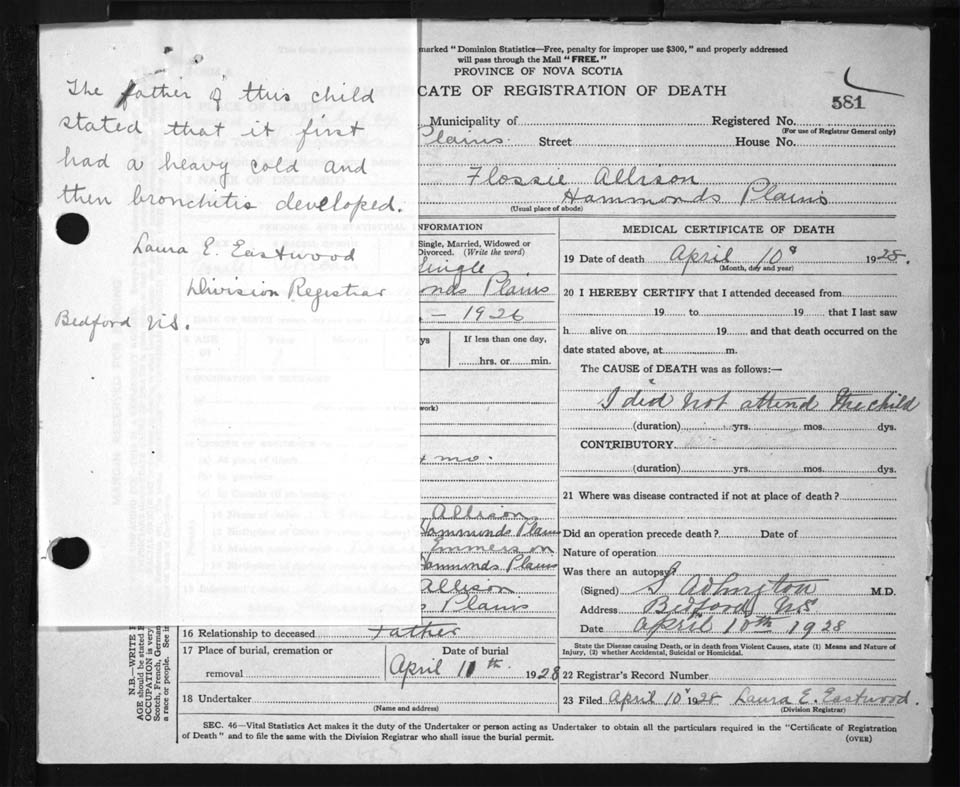 The father of this child
stated that it first
had a heavy cold and
then bronchitis developed.
Laura E. Eastwood
Division Registrar
Bedford N.S.
marked "Dominion Statistics—Free, penalty for improper use $300," and properly addressed
will pass through the Mail "FREE."
PROVINCE OF NOVA SCOTIA
CATE OF REGISTRATION OF DEATH
581
Municipality of Registered No.
(For use of Registrar General only)
Plains. Street House No.
Flossie Allison
Hammonds Plains
(Usual place of abode)
INFORMATION
Single, Married, Widowed or
Divorced. (Write the word)
Single
onds Plains
— 1926
ys If less than one day,
hrs. or min.
work)
mo.
Allison
Hammonds Plains
Emmerson
Hammonds Plains
Allison
s Plains
16 Relationship to deceased Father
17 Place of burial, cremation or Date of burial
removal April 11th. 1928
18 Undertaker
(Name and address)
MEDICAL CERTIFICATE OF DEATH
19 Date of death April 10th 1928.
(Month, day and year)
20 I HEREBY CERTIFY that I attended deceased from
19 to 19 that I last saw
h alive on 19 and that death occurred on the
date stated above, at m.
The CAUSE of DEATH was as follows:—
I did not attend the child
(duration) yrs. mos. dys.
CONTRIBUTORY
(duration) yrs. mos. dys.
21 Where was disease contracted if not at place of death?
Did an operation precede death? Date of
Nature of operation
Was there an autopsy?
(Signed) M.D.
Address Bedford NS
Date April 10th 1928
State the Disease causing Death, or in death from Violent Causes, state (1) Means and Nature of
Injury, (2) whether Accidental, Suicidal or Homicidal.
22 Registrar's Record Number
23 Filed April 10 1928 Laura E. Eastwood.
(Division Registrar)
N.B.—WRITE
AGE should be stated
OCCUPATION is very
Scotch, French, German
a race or people. See
SEC. 46—Vital Statistics Act makes it the duty of the Undertaker or person acting as Undertaker to obtain all the particulars required in the "Certificate of Registration
of Death" and to file the same with the Division Registrar who shall issue the burial permit. (OVER)